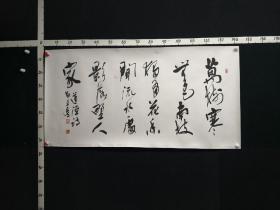 萬樹寒
無色南枝
獨有花香
聞流水處
影落野人
家
道源詩